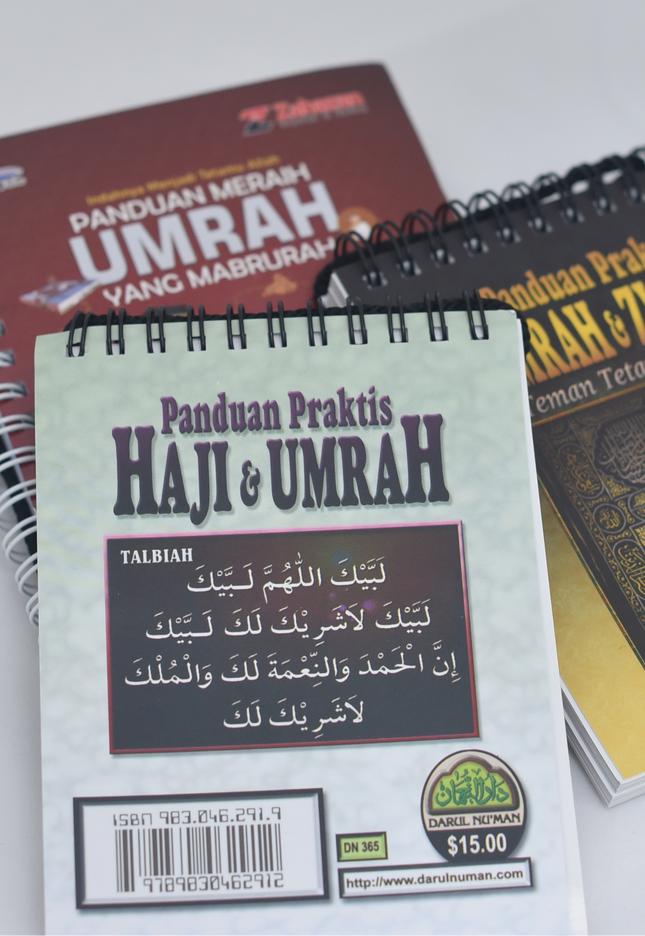 Zahwan
Indahnya Menjadi Tetamu Allah
PANDUAN MERAIH
UMRAH
YANG MABRURAH
Panduan
RAH & Z
Teman Teta
Panduan Praktis
HAJI & UMRAH
TALBIAH
لَبَّيْكَ اللّٰهُمَّ لَـبَّيْكَ
لَبَّيْكَ لَاشَرِيْكَ لَكَ لَـبَّيْكَ
إِنَّ الْحَمْدَ وَالنِّعْمَةَ لَكَ وَالْمُلْكَ
لَاشَرِيْكَ لَكَ
ISBN 983.046.291.9
9789830462912
دار النعمان
DARUL NU'MAN
$15.00
DN 365
http://www.darulnuman.com